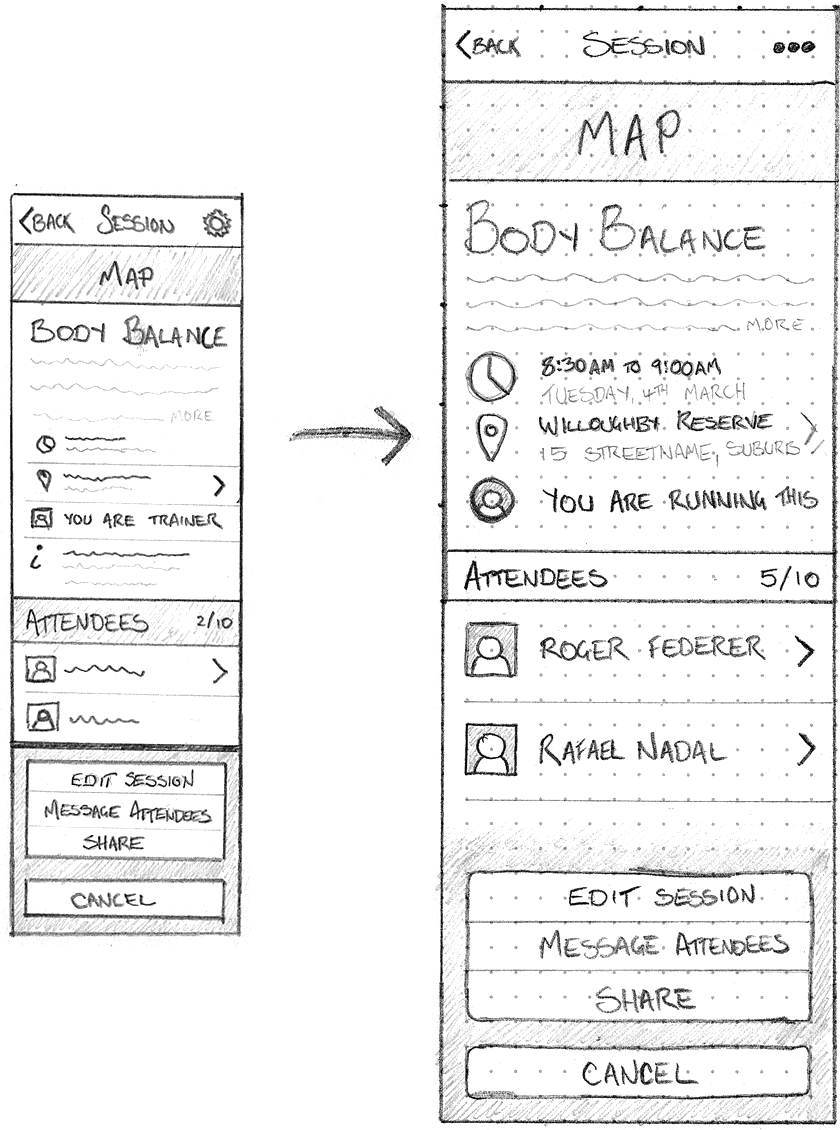 < BACK SESSION
MAP
BODY BALANCE
MORE
YOU ARE TRAINER
i
ATTENDEES 2/10
EDIT SESSION
MESSAGE ATTENDEES
SHARE
CANCEL
< BACK SESSION •••
MAP
BODY BALANCE
MORE
8:30AM TO 9:00AM
TUESDAY, 4TH MARCH
WILLOUGHBY RESERVE
15 STREETNAME, SUBURB
YOU ARE RUNNING THIS
ATTENDEES 5/10
ROGER FEDERER
RAFAEL NADAL
EDIT SESSION
MESSAGE ATTENDEES
SHARE
CANCEL